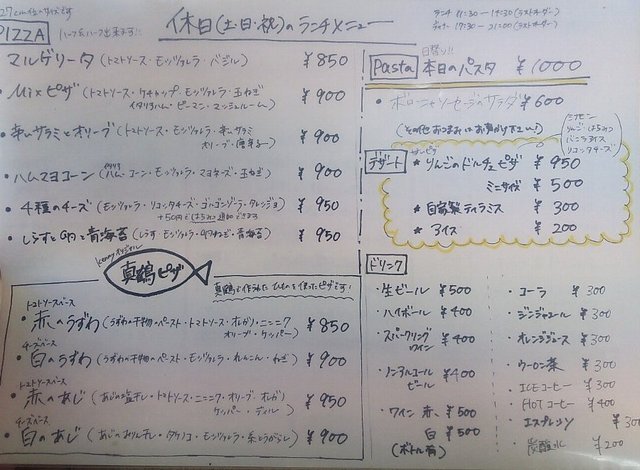 27cmサイズです
休日(土・日・祝)のランチメニュー
ランチ 11:30〜14:30(ラストオーダー)
ディナー 17:30〜21:00(ラストオーダー)
PIZZA
ハーフ&ハーフ出来ます!!
・マルゲリータ (トマトソース・モッツァレラ・バジル) ¥850
・Mixピザ (トマトソース・ケチャップ・モッツァレラ・玉ねぎ
イタリアハム・ピーマン・マッシュルーム) ¥900
・辛いサラミとオリーブ (トマトソース・モッツァレラ・辛いサラミ
オリーブ・唐辛子) ¥900
・ハムマヨコーン (ハム・コーン・モッツァレラ・マヨネーズ・玉ねぎ) ¥900
・4種のチーズ (モッツァレラ・リコッタチーズ・ゴルゴンゾーラ・タレッジョ) ¥950
+50円ではちみつ追加できます
・しらすと九条ねぎと青海苔 (しらす・モッツァレラ・九条ねぎ・青海苔) ¥950
真鶴ピザ
真鶴で作られたひものを使ったピザです!
トマトソースベース
・赤のうずわ (うずわの干物のペースト・トマトソース・オレガノ・ニンニク
オリーブ・ケッパー) ¥850
チーズベース
・白のうずわ (うずわの干物のペースト・モッツァレラ・れんこん・ねぎ) ¥900
トマトソースベース
・赤のあじ (あじの塩干し・トマトソース・ニンニク・オリーブ・オレガノ
ケッパー・ディル) ¥950
チーズベース
・白のあじ (あじのみりん干し・タケノコ・モッツァレラ・糸とうがらし) ¥900
日替り!!
Pasta 本日のパスタ ¥1000
・ボローニャソーセージのサラダ ¥600
(その他おつまみはお声がけ下さい!)
シナモン
りんご はちみつ
バニラアイス
リコッタチーズ
デザート
★りんごのドルチェピザ ¥950
ミニサイズ ¥500
★自家製ティラミス ¥300
★アイス ¥200
ドリンク
・生ビール ¥500
・ハイボール ¥400
・スパークリング
ワイン ¥400
・ノンアルコール
ビール ¥400
・ワイン 赤 ¥500
白 ¥500
(ボトル有)
・コーラ ¥300
・ジンジャエール ¥300
・オレンジジュース ¥300
・ウーロン茶 ¥300
・ICEコーヒー ¥300
・HOTコーヒー ¥400
・エスプレッソ ¥300
・炭酸水 ¥200